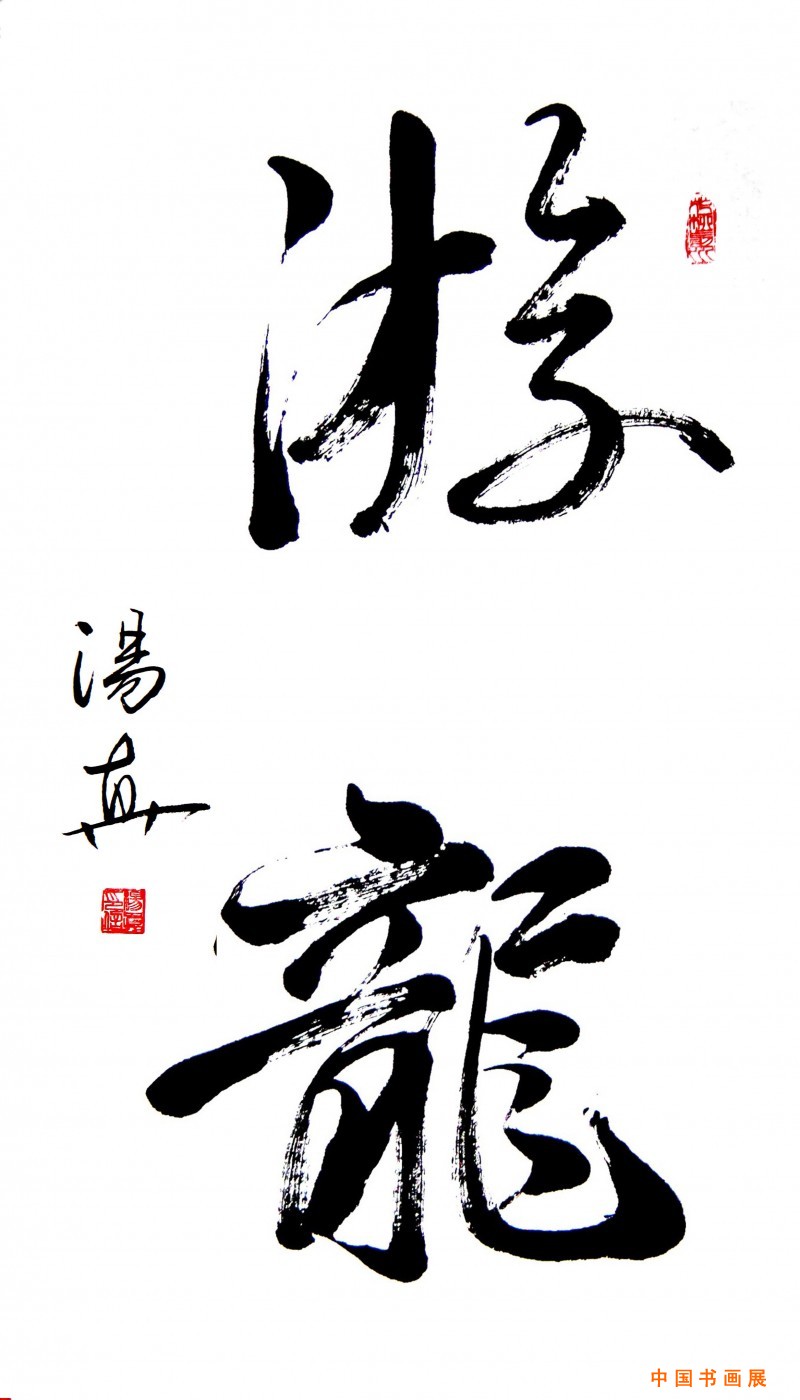 游龍
湯真
中国书画展